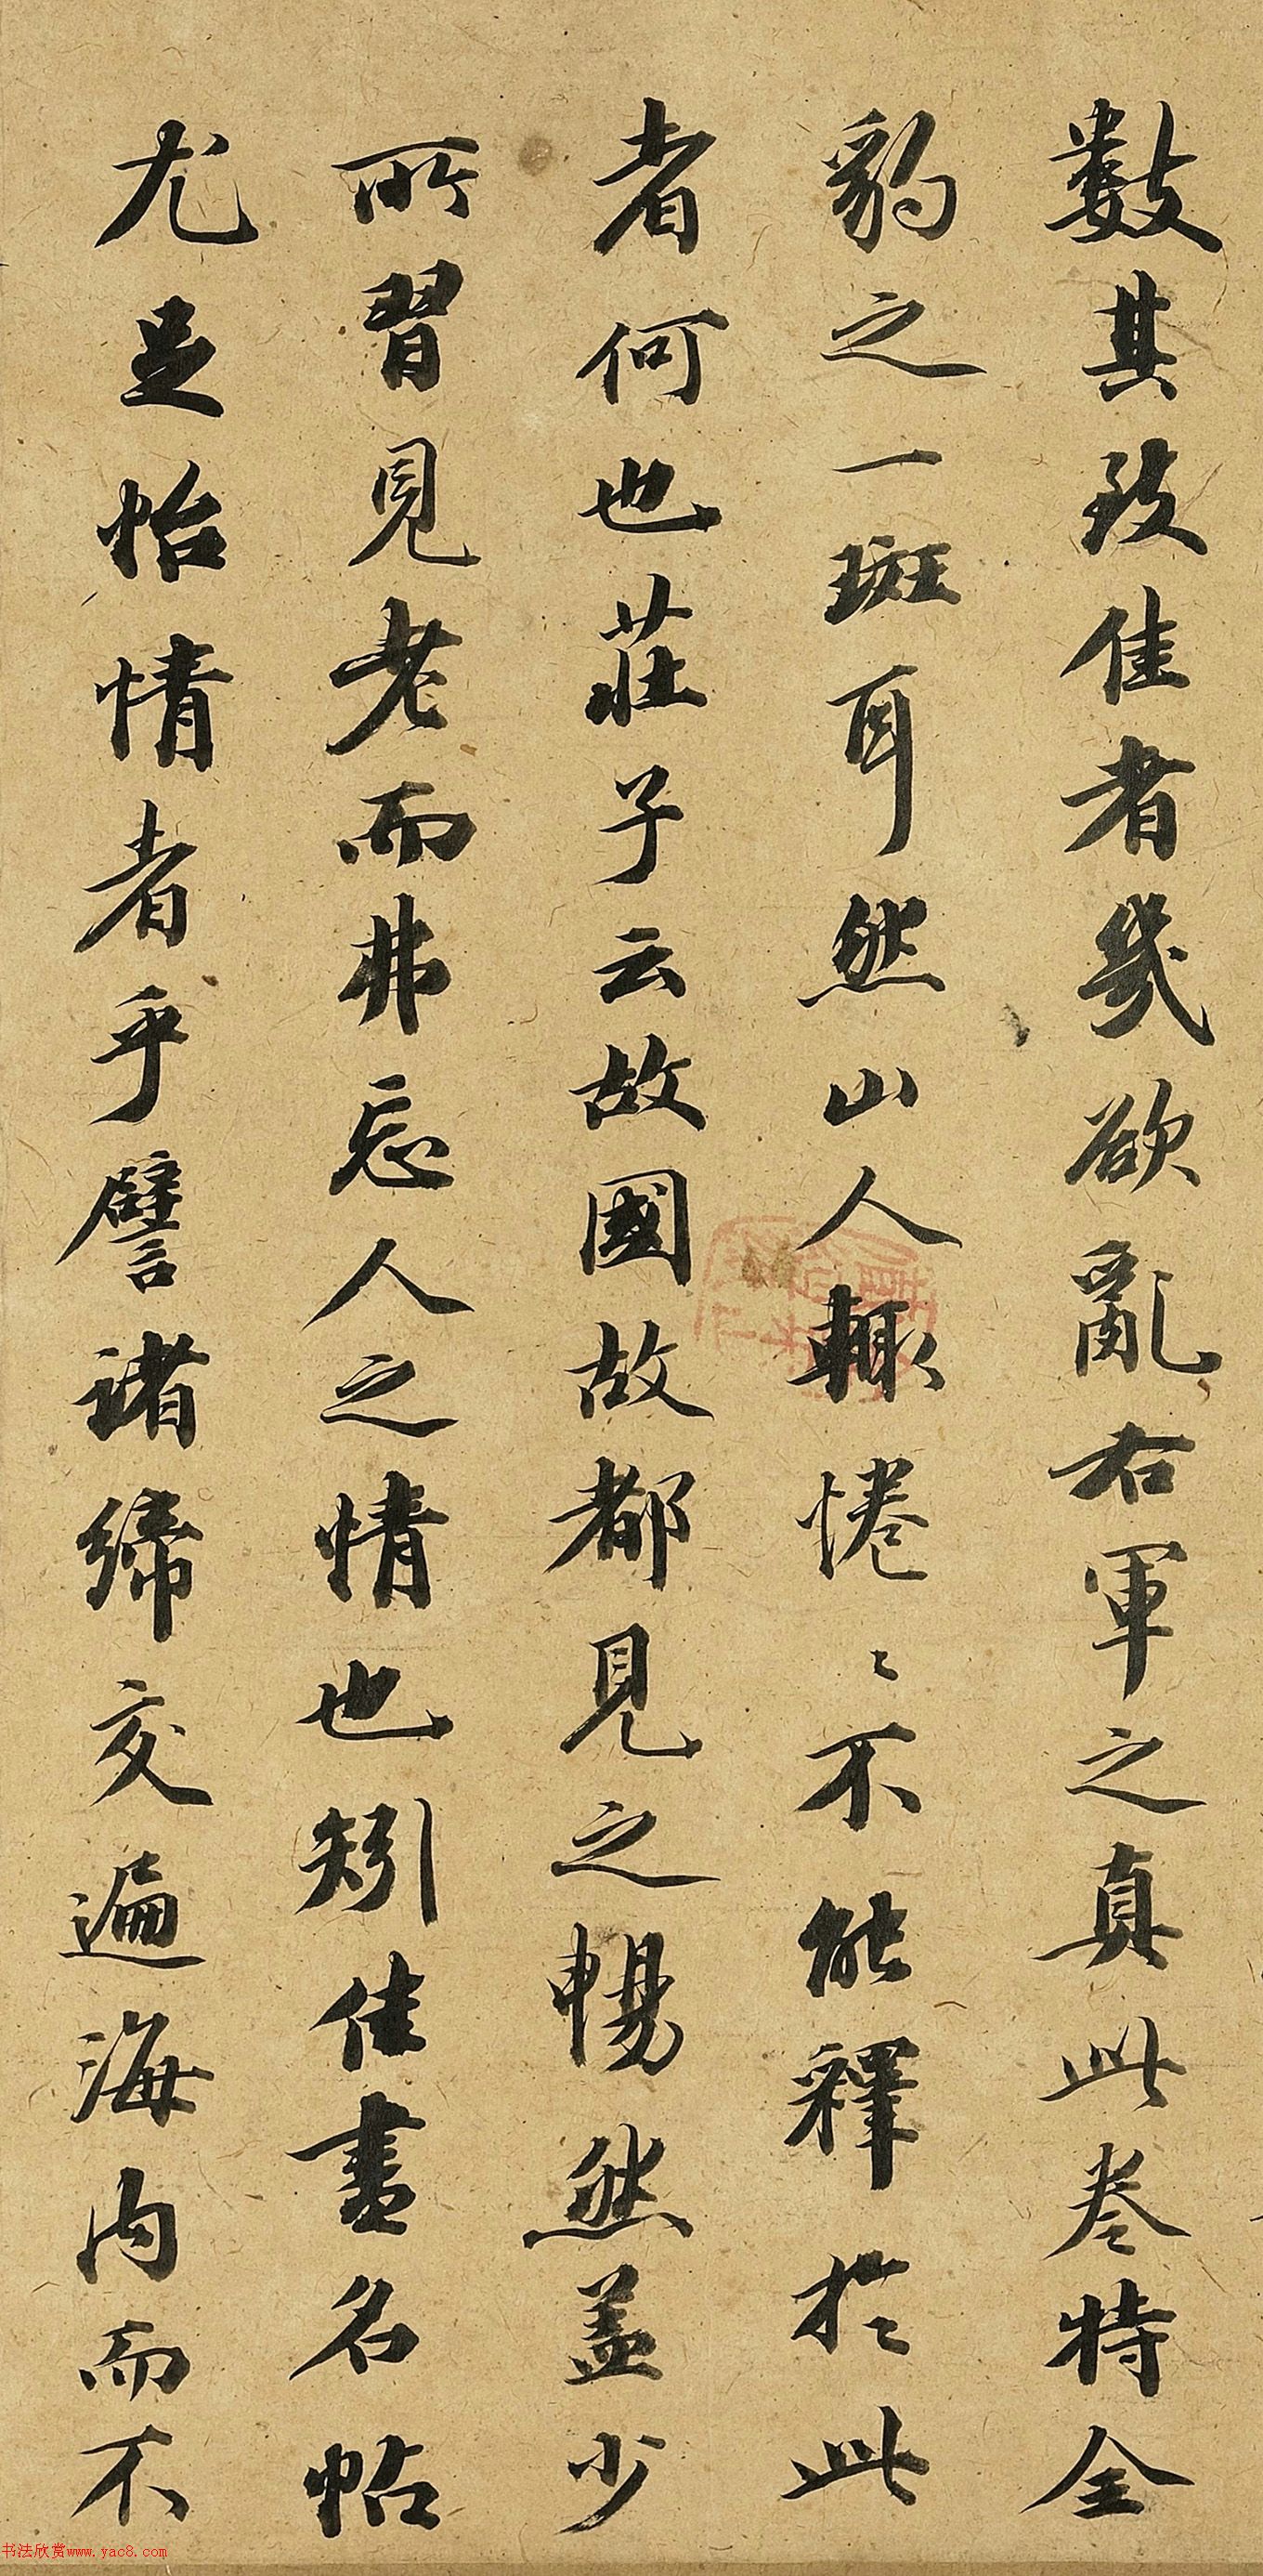 數其致佳者幾欲亂右軍之真此卷特全
豹之一斑耳然山人輒惓〻不能釋於此
者何也莊子云故國故都見之暢然蓋少
所習見老而弗忘人之情也矧佳畫名帖
尤足怡情者乎譬諸締交遍海內而不
书法欣赏www.yac8.com